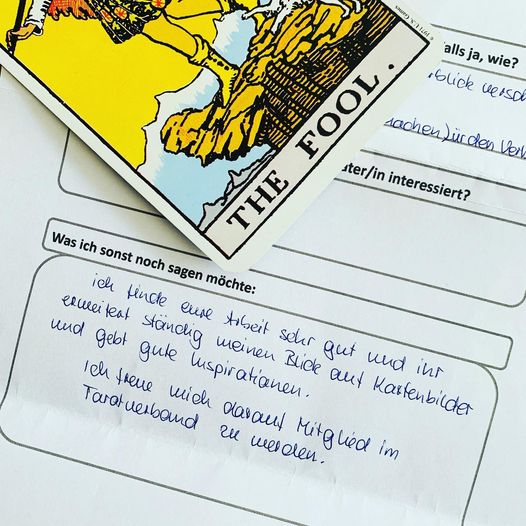 THE FOOL.
alls ja, wie?
machen) für den
ater/in interessiert?
Was ich sonst noch sagen möchte:
ich finde eure Arbeit sehr gut und ihr
erweitert ständig meinen Blick auf Kartenbilder
und gebt gute Inspirationen.
Ich freue mich darauf Mitglied im
Tarotverband zu werden.